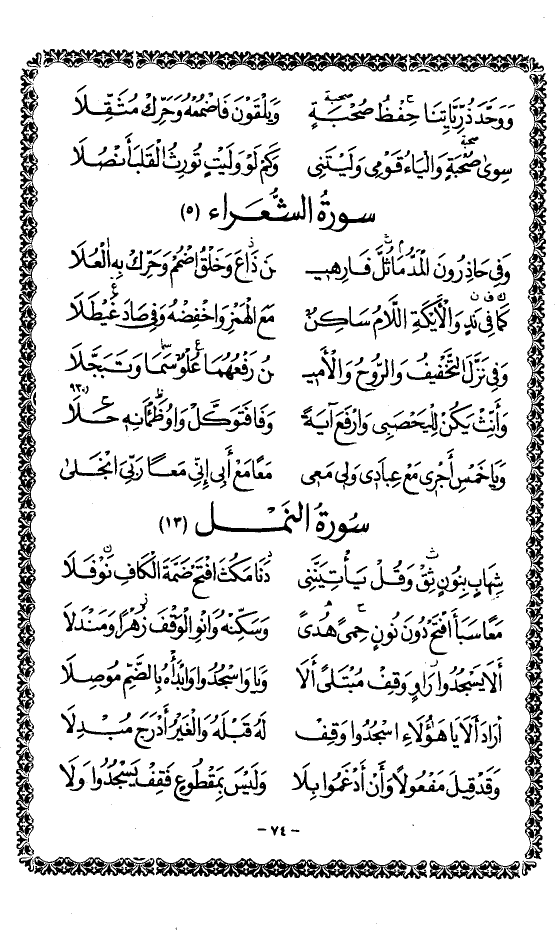 وَوَحَّدَ ذُرِّيَّاتِنَا حِفْظُ صُحْبَةٍ وَيَلْقَوْنَ فَاضْمُمْهُ وَحَرِّكْ مُثَقِّلَا
سِوَى صُحْبَةٍ وَالْيَاءُ قَوْمِى وَلَيْتَنِى وَكَمْ لَوْ وَلَيْتٍ تُورِثُ الْقَلْبَ أَنْصُلَا
سورة الشعراء (٥)
وَفِى حَاذِرُونَ الْمَدُّ مَا ثُلَّ فَارِهِيـ ـنَ ذَاعَ وَخَلْقُ اضْمُمْ وَحَرِّكْ بِهِ الْعُلَا
كَمَا فِى نَدٍ وَالْأَيْكَةِ اللَّامُ سَاكِنٌ مَعَ الْهَمْزِ وَاخْفِضْهُ وَفِى صَادَ غَيْطَلَا
وَفِى نَزَّلَ التَّخْفِيفُ وَالرُّوحُ وَالْأَمِيـ ـنُ رَفْعُهُمَا عُلْوٌ سَمَا وَتَبَجَّلَا
٩٣٠
وَأَنِّثْ يَكُنْ لِلْيَحْصَبِى وَارْفَعْ آيَةً وَفَا فَتَوَكَّلْ وَاوُ ظَمْآنِهِ حَلَا
وَيَا خَمْسِ أَجْرِى مَعْ عِبَادِى وَلِى مَعِى مَعًا مَعْ أَبِى إِنِّى مَعًا رَبِّىَ انْجَلَى
سورة النمل (١٣)
شِهَابٍ بِنُونٍ ثِقْ وَقُلْ يَأْتِيَنَّنِى دَنَا مَكُثَ افْتَحْ ضَمَّةَ الْكَافِ نَوْفَلَا
مَعًا سَبَأَ افْتَحْ دُونَ نُونٍ حِمًى هُدًى وَسَكِّنْهُ وَانْوِ الْوَقْفَ زُهْرًا وَمَنْدَلَا
أَلَا يَسْجُدُوا رَاوٍ وَقِفْ مُبْتَلًى أَلَا وَيَا وَاسْجُدُوا وَابْدَأْهُ بِالضَّمِّ مُوصِلَا
أَرَادَ أَلَا يَا هَؤُلَاءِ اسْجُدُوا وَقِفْ لَهُ قَبْلَهُ وَالْغَيْرُ أَدْرَجَ مُبْدِلَا
وَقَدْ قِيلَ مَفْعُولًا وَأَنْ أَدْغَمُوا بِلَا وَلَيْسَ بِمَقْطُوعٍ فَقِفْ يَسْجُدُوا وَلَا
- ٧٤ -